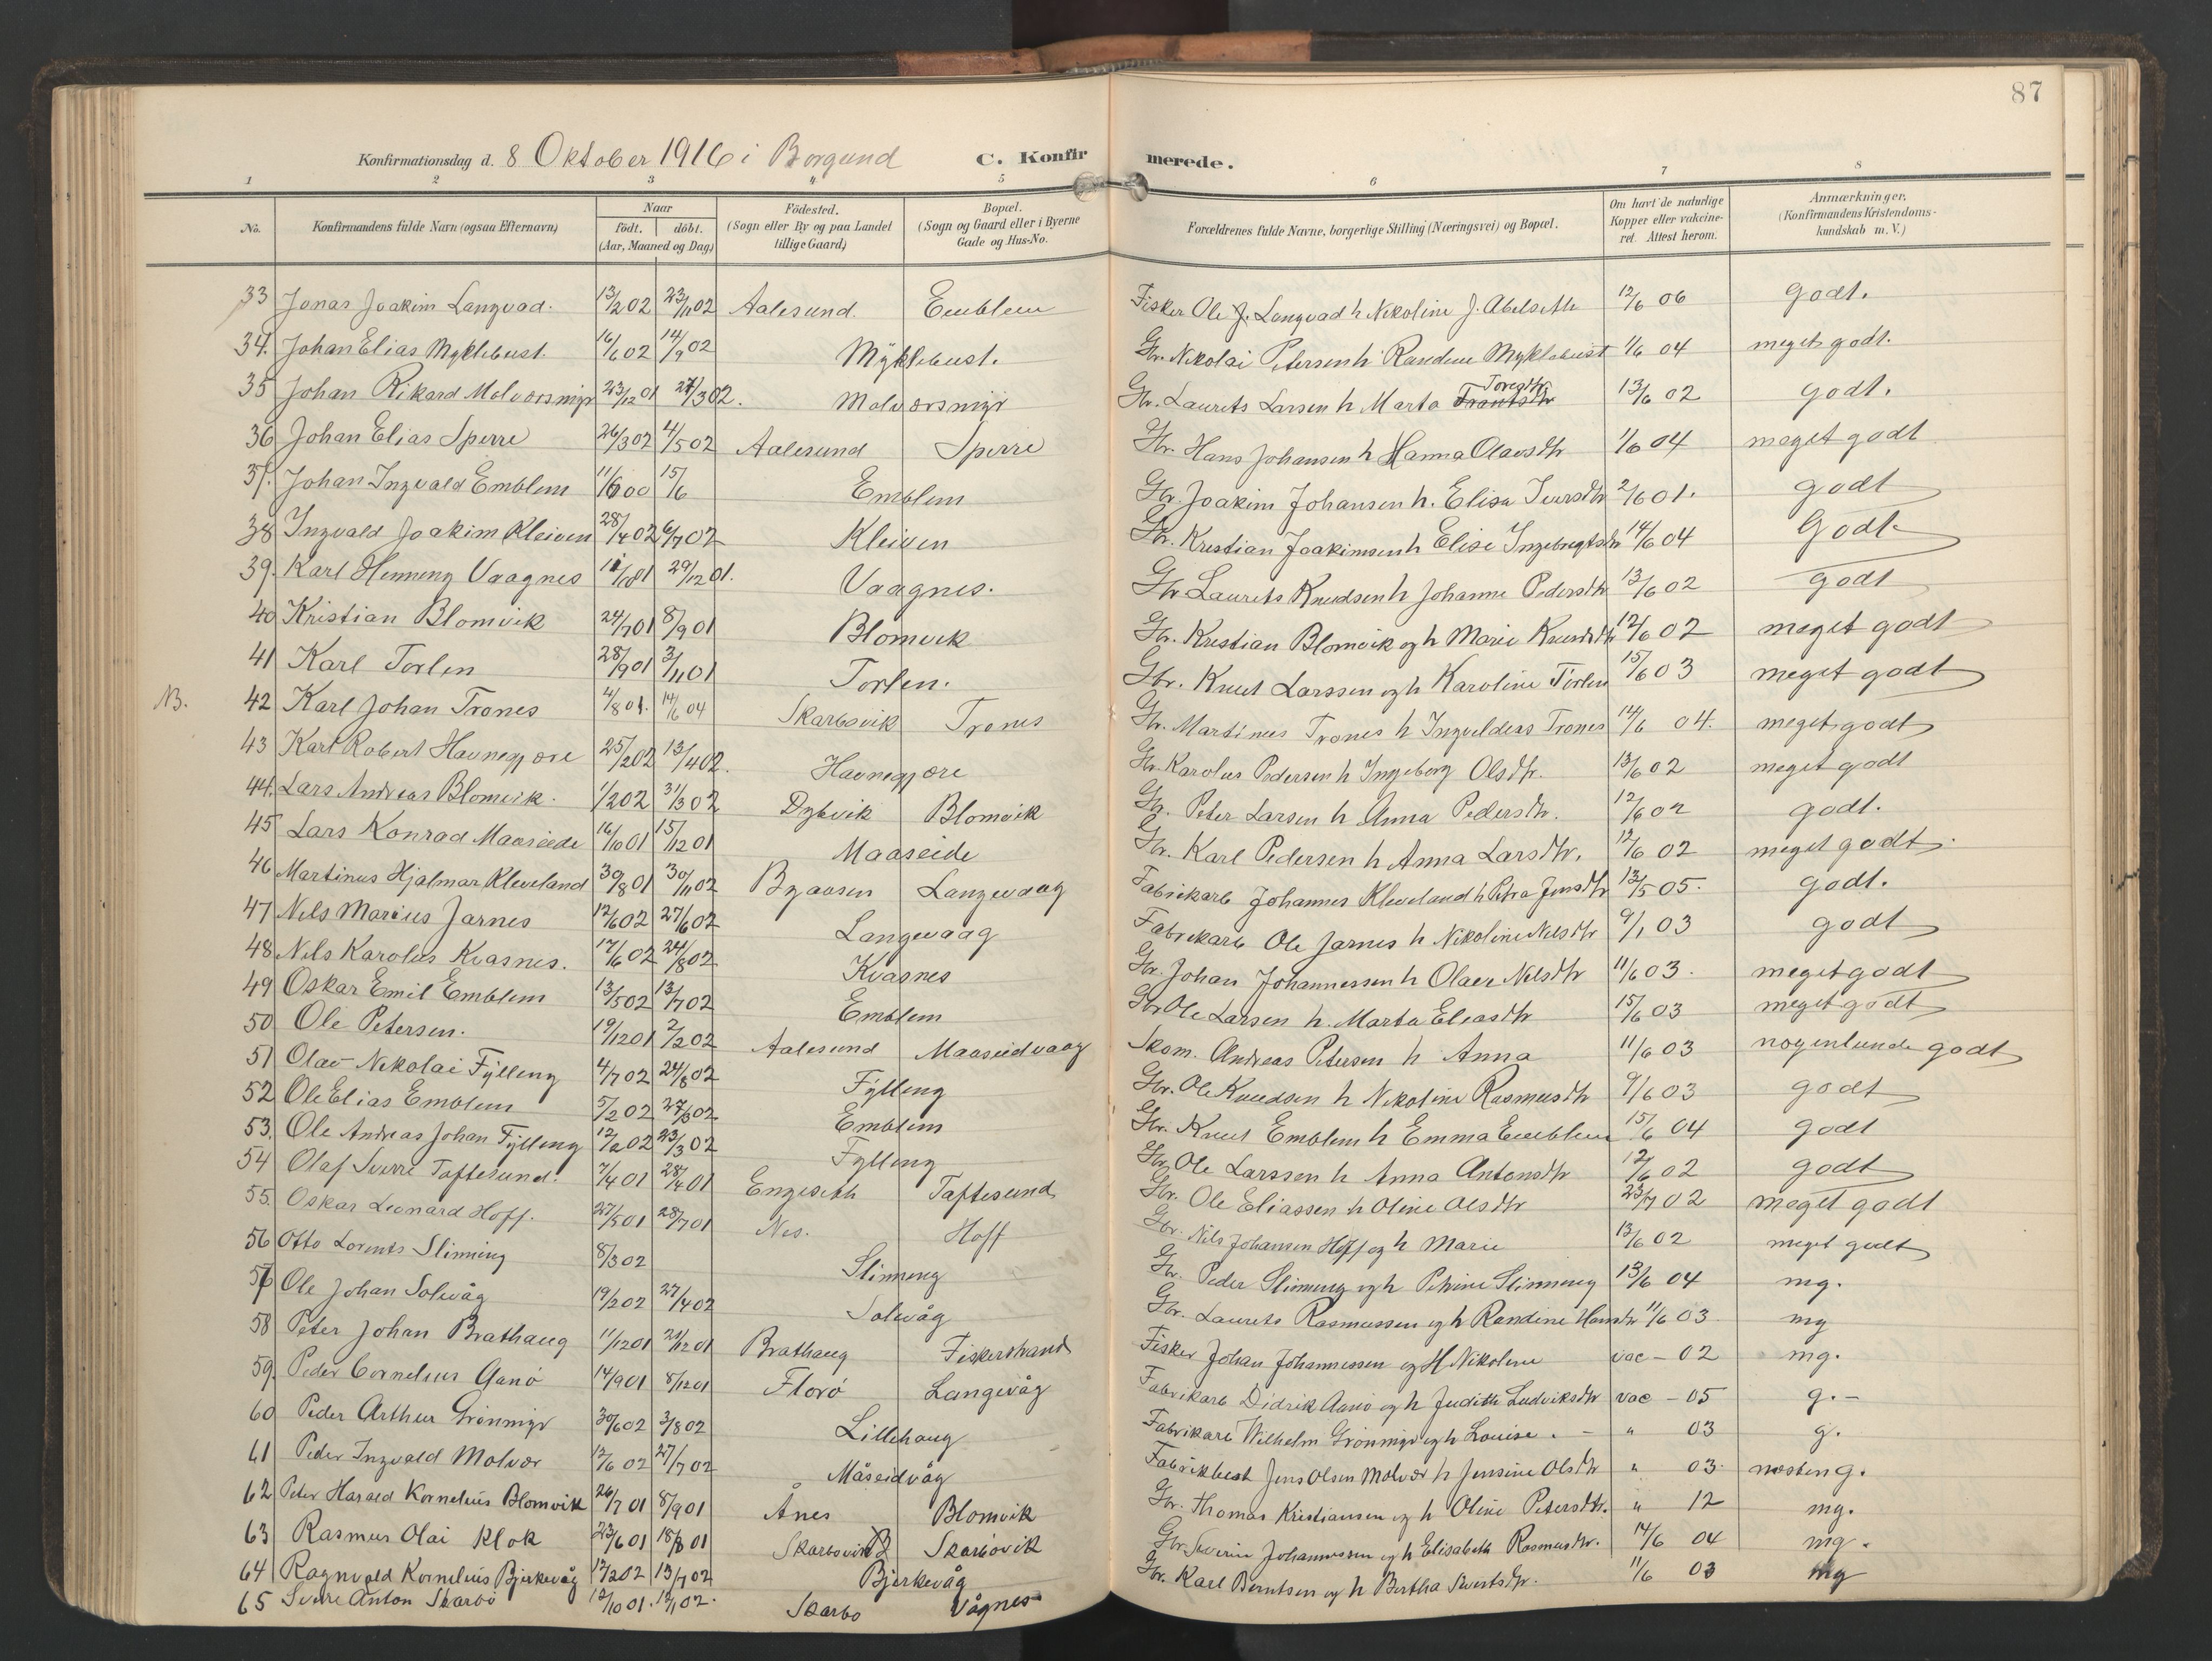 87
Konfirmationsdag d. 8 Oktober 1916 i Borgund C. Konfirmerede.
1 2 3 4 5 6 7 8
No. Konfirmandens fulde Navn (ogsaa Efternavn) Naar födt. döbt. (Aar, Maaned og Dag) Födested. (Sogn eller By og paa Landet tillige Gaard) Bopæl. (Sogn og Gaard eller i Byerne Gade og Hus-No. Forældrenes fulde Navne, borgerlige Stilling (Næringsvei) og Bopæl. Om havt de naturlige Kopper eller vakcineret. Attest herom. Anmærkninger, (Konfirmandens Kristendomskundskab m. V.)
33 Jonas Joakim Langvad. 13/2 02 23/11 02 Aalesund. Emblem Fisker Ole J. Langvad h Nikoline J. Abelseth 12/6 06 Godt.
34. Johan Elias Myklebust. 16/6 02 14/9 02 Myklebust. Gbr. Nikolai Petersen h Randine Myklebust 1/6 04 meget godt.
35 Johan Rikard Molværsmyr 23/12 01 27/3 02. Molværsmyr Gbr. Laurits Larsen h Marta 13/6 02 godt.
36 Johan Elias Sperre 26/3 02 4/5 02 Aalesund Sperre Gbr. Hans Johansen h Hanna Olavsdtr 1/6 04 meget godt
37. Johan Ingvald Emblem 11/6 00 15/6 Emblem Gbr. Joakim Johansen h. Elisa Iversdtr 2/6 01. godt
38 Ingvald Joakim Kleiven 28/4 02 6/7 02 Kleiven Gbr. Kristian Joakimsen h Elise Ingebregtsdtr 14/6 04 Godt.
39. Karl Henning Vaagnes 29/12 01. Vaagnes. Gbr Laurits Knudsen h Johanne Pedersdtr 13/6 02 godt
40 Kristian Blomvik 24/7 01 8/9 01 Blomvik Gbr. Kristian Blomvik og h Marie Knudsdtr 12/6 02 meget godt
41 Karl Torlen 28/9 01 3/11 01 Torlen. Gbr. Knut Larssen og h Karoline Torlen 15/6 03 meget godt
NB. 42 Karl Johan Trones 4/8 01. 14/6 04 Skarbøvik Trones Gbr. Martinus Trones h Trones 14/6 04. meget godt
43 Karl Robert Havnegjære 25/2 02 13/4 02. Havnegjære Gbr. Karolus Pedersen h Ingeborg Olsdtr. 13/6 02 meget godt
44. Lars Andreas Blomvik. 1/2 02 31/3 02 Dybvik Blomvik Gbr. Peter Larsen h Anna Pedersdtr. 12/6 02 godt.
45 Lars Konrad Maaseide 16/10 01 15/12 01 Maaseide Gbr. Karl Pedersen h Anna Larsdtr. 12/6 02 meget godt.
46 Martinus Hjalmar Kleveland 30/8 01 30/11 02 Byaasen Langevaag Fabrikarb Johannes Kleveland h Petra Jensdtr 13/5 05. godt.
47 Nils Marius Jarnes 12/6 02 27/6 02 Langevaag Fabrikarb Ole Jarnes h Nikoline Nilsdtr 9/1 03 godt
48 Nils Karolus Kvasnes. 17/6 02 24/8 02 Kvasnes Gbr. Johan Johannessen h Nilsdtr 11/6 03. meget godt
49 Oskar Emil Emblem 13/5 02 13/7 02 Emblem Gbr Ole Larsen h. Marta Eliasdtr 15/6 03 meget godt
50 Ole Petersen. 19/12 01 2/2 02 Aalesund Maaseidvaag Skom. Andreas Petersen h Anna 11/6 03 nogenlunde godt
51 Olav Nikolai Fylling 4/7 02 24/8 02 Fylling Gbr. Ole Knudsen h Nikoline Rasmusdtr 9/6 03 godt
52 Ole Elias Emblem 5/2 02 Emblem Gbr. Knut Emblem h Emma Emblem 15/6 04 godt
53. Ole Andreas Johan Fylling 12/2 02 23/3 02 Fylling Gbr Ole Larssen h Anna Antonsdtr 12/6 02 godt
54 Olaf Sverre Taftesund. 7/4 01 28/4 01 Engeseth Taftesund Gbr. Ole Eliassen h Oline Olsdtr 23/7 02 meget godt
55. Oskar Leonard Hoff. 27/5 01 28/7 01 Nes. Hoff Gbr. Nils Johansen Hoff og h Marie 13/6 02 meget godt
56 Otto Lorents Slinning 8/3 02 Slinning Gbr. Peder Slinning og h Petrine Slinning 13/6 04 mg.
57 Ole Johan Solevåg 19/2 02 27/4 02 Solevåg Gbr. Laurits Rasmussen og h Randine Hansdtr 11/6 03. mg
58 Peter Johan Brathaug 11/12 01 Brathaug Fiskerstrand Fisker Johan Johannessen og H Nikoline vac - 02 mg.
59. Peder Cornelius Aanö 14/9 01 8/12 01 Florö Langevåg Fabrikarb Didrik Aanö og h Judith Ludviksdtr vac - 05 g. -
60 Peder Arthur Grönmyr 30/6 02 3/8 02 Lillehaug Fabrikarb Wilhelm Grönmyr og h Louise. - " 03 g.
61 Peder Ingvald Molvær 12/6 02 27/7 02 Måseidvåg Jens Olsen Molvær h Jensine Olsdtr " 03. næsten g.
62 Peter Harald Kornelius Blomvik 26/7 01 8/9 01 Ånes Blomvik Gbr. Thomas Kristiansen og h Oline Petersdtr. " 12 mg.
63 Rasmus Olai Klok 23/6 01 18/8 01 Skarbøvik Skarbövik Gbr Severin Johannessen og h Elisabeth Rasmusdtr. 14/6 04 mg.
64 Ragnvald Kornelius Bjerkevåg 17/2 02 13/7 02 Bjerkevåg Gbr. Karl Berntsen og h Bertha Sivertsdtr. 11/6 03 mg
65 Sverre Anton Skarbö 12/10 01. 12/1 02. Skarbö Vågnes